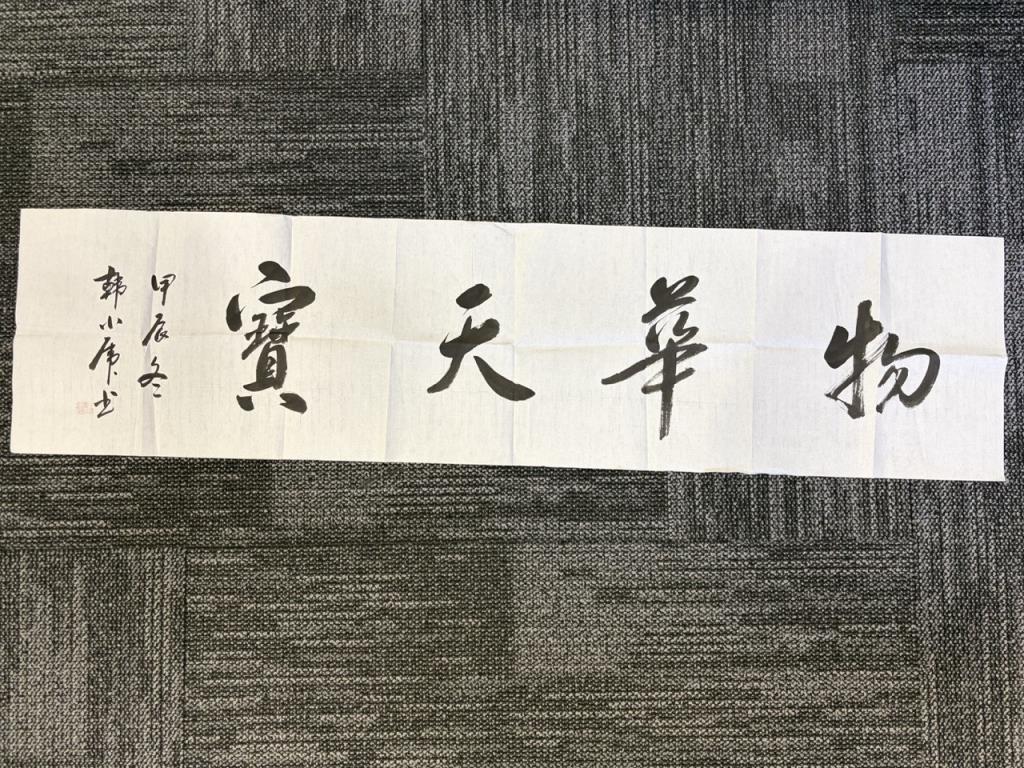 物華天寶
甲辰冬
韩小虎书